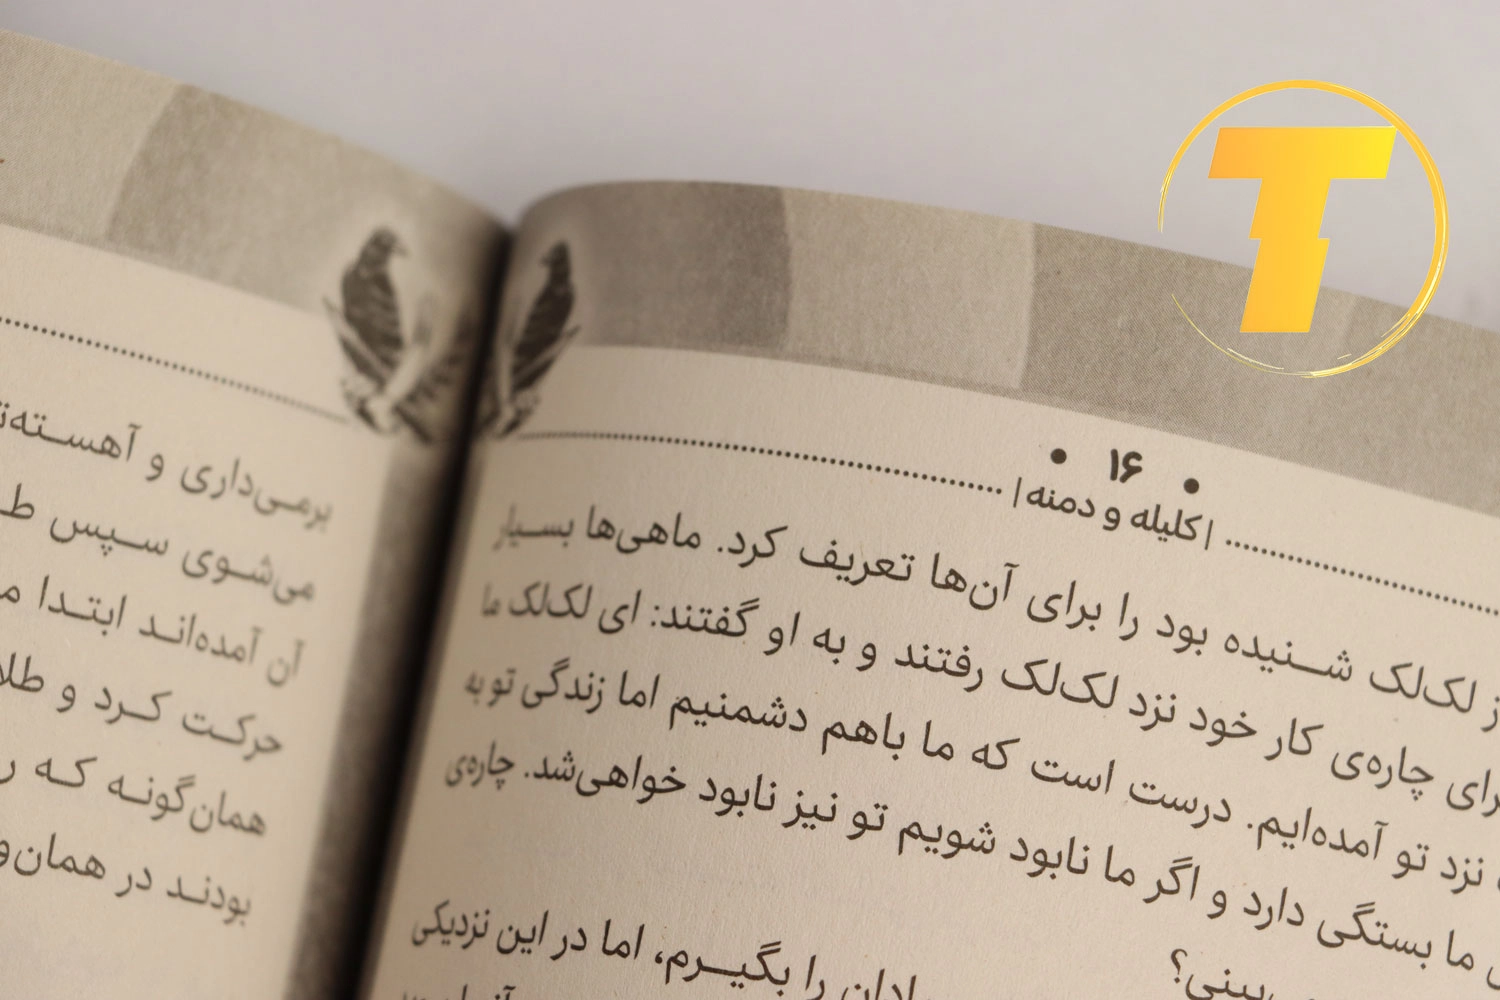 T
۱۶
|کلیله و دمنه|
ز لک‌لک شنیده بود را برای آن‌ها تعریف کرد. ماهی‌ها بسیار
رای چاره‌ی کار خود نزد لک‌لک رفتند و به او گفتند: ای لک‌لک ما
نزد تو آمده‌ایم. درست است که ما باهم دشمنیم اما زندگی تو به
ما بستگی دارد و اگر ما نابود شویم تو نیز نابود خواهی‌شد. چاره‌ی
بینی؟
را بگیرم، اما در این نزدیکی
برمی‌داری و آهسته‌
می‌شوی سپس ط
آن آمده‌اند ابتدا م
حرکت کرد و طلا
همان‌گونه که ر
بودند در همان‌و